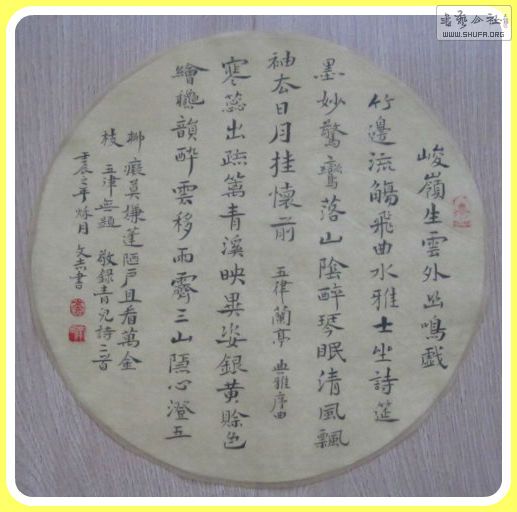 峻嶺生雲外幽鳴戲
竹邊流觴飛曲水雅士坐詩筵
墨妙驚鸞落山陰醉琴眠清風飄
袖去日月挂懷前 五律蘭亭 典雅序曲
寒蕊出疏篱青溪映異姿銀黄賒色
繪韻醉雲移雨霽三山隱心澄五
柳癡莫嫌蓬陋戶且看萬金
枝 五律無題 敬錄青兒詩二首
壬辰之年秋月 文吉書
WWW.SHUFA.ORG